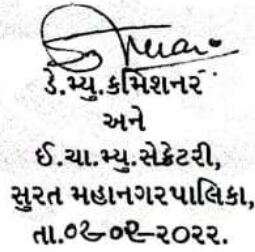 ડે.મ્યુ.કમિશનર
અને
ઈ.ચા.મ્યુ.સેક્રેટરી,
સુરત મહાનગરપાલિકા,
તા. ૨૦૨૨.